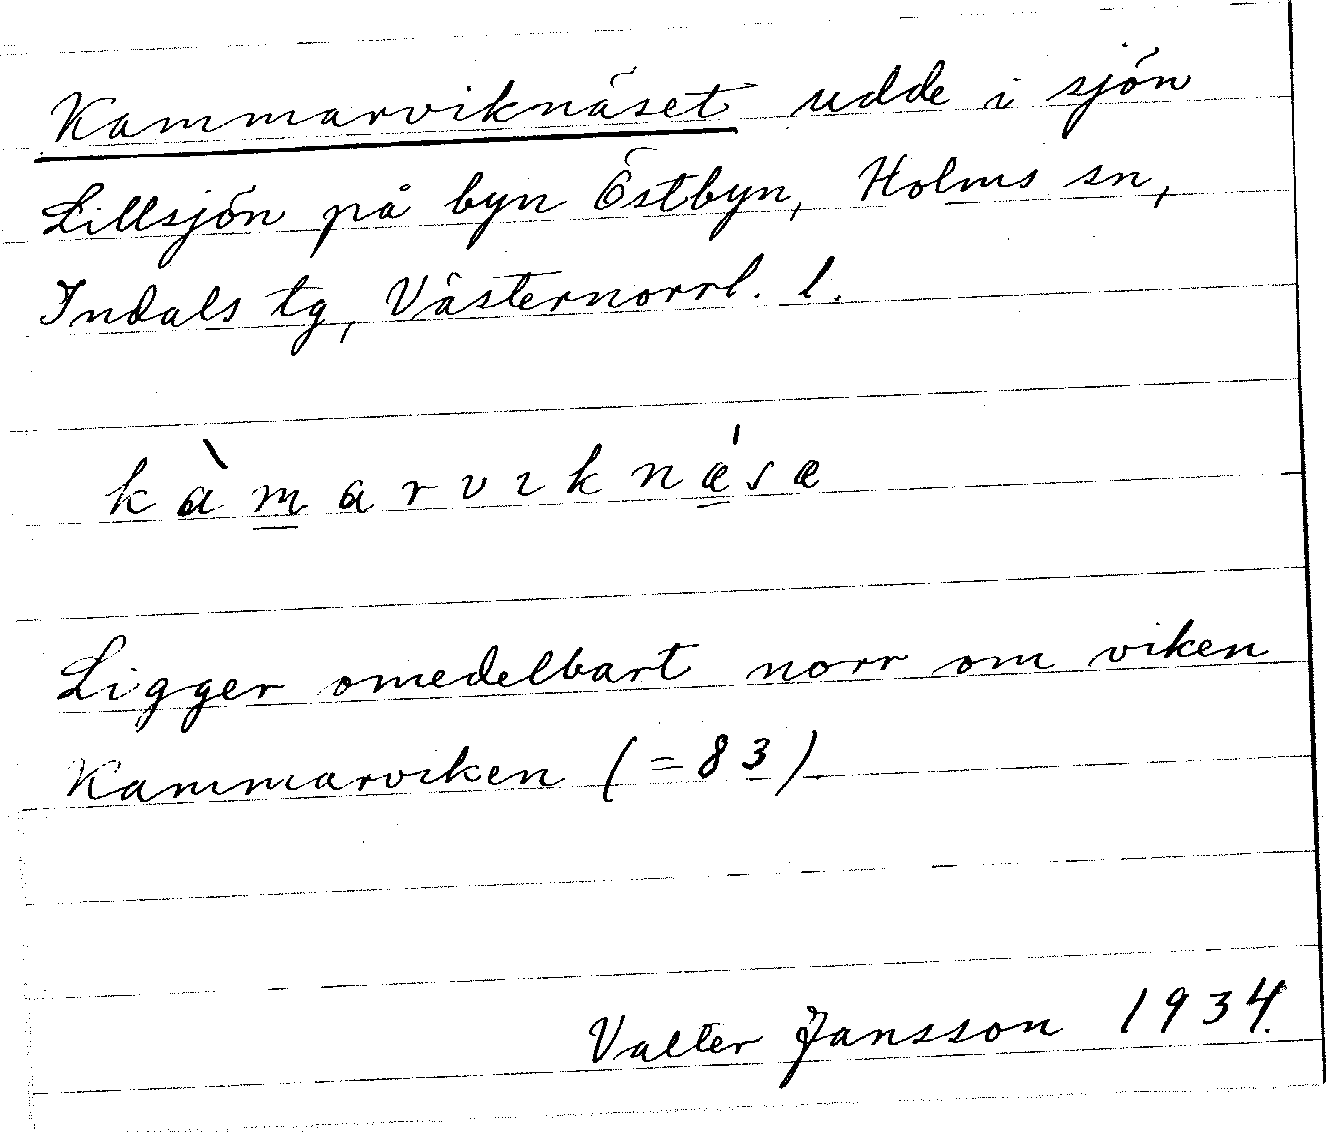 Kammarviknäset udde i sjön
Lillsjön på byn Östbyn, Holms sn,
Indals tg, Västernorrl. l.
kàmarvıknǽsæ
Ligger omedelbart norr om viken
Kammarviken (=83)
Valter Jansson 1934.